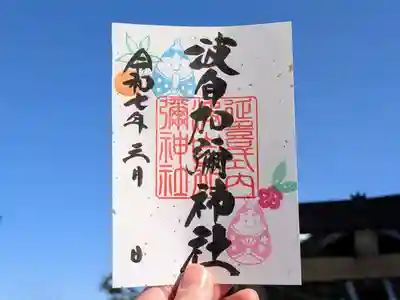 波自加彌神社
延喜式内
彌神社
令和七年三月 日